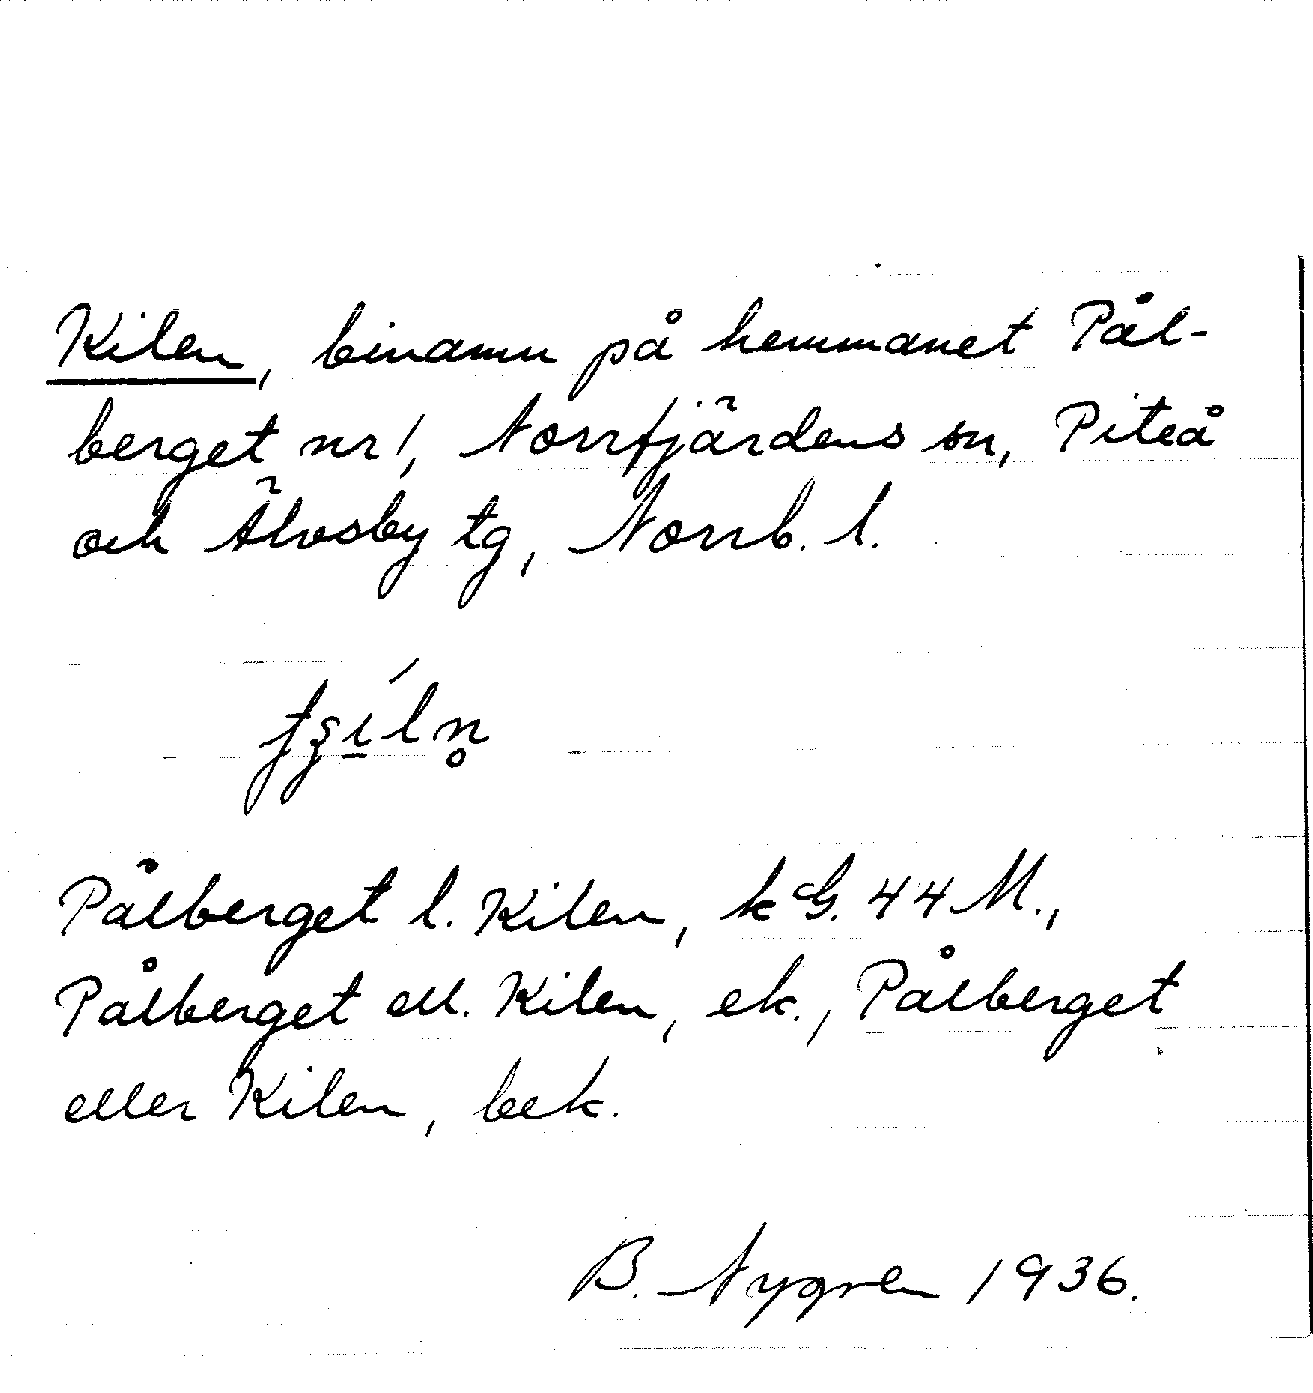 Kilen, binamn på hemmanet Pål-
berget nr 1, Norrfjärdens sn, Piteå
och Älvsby tg, Norrb. l.
Pålberget l. Kilen, k G. 44 M.,
Pålberget ell. Kilen, ek., Pålberget
eller Kilen, bek.
B. Nygren 1936.